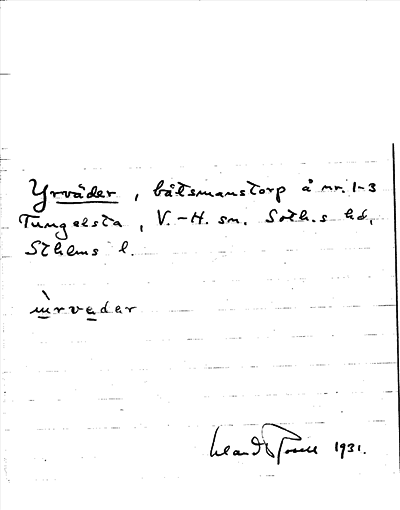 Yrväder, båtsmanstorp å nr. 1-3
Tungelsta, V.-H. sn. Soth.s hd,
Sthlms l.
ẁrveder
1931.